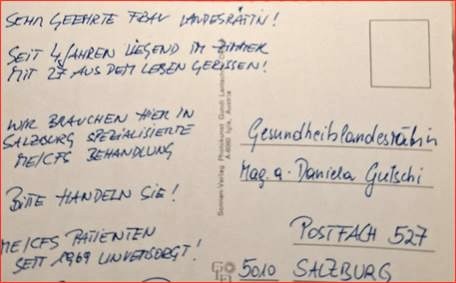 SEHR GEEHRTE FRAU LANDESRÄTIN!
SEIT 4 JAHREN LIEGEND IM ZIMMER
MIT 27 AUS DEM LEBEN GERISSEN!
WIR BRAUCHEN HIER IN
SALZBURG SPEZIALISIERTE
ME/CFS BEHANDLUNG
BITTE HANDELN SIE!
ME/CFS PATIENTEN
SEIT 1969 UNVERSORGT!
Sonnen-Verlag Photokunst Gundi
Austria
Gesundheitslandesrätin
Mag.a. Daniela Gutschi
POSTFACH 527
5010 SALZBURG